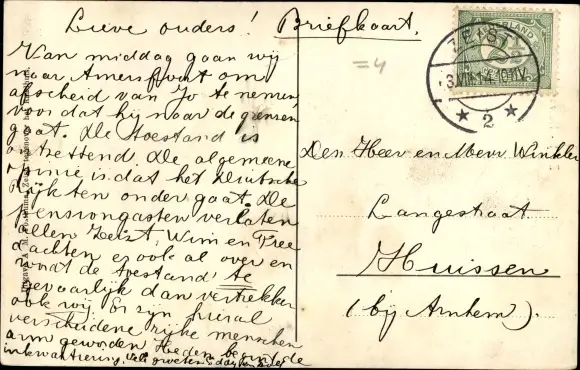 Lieve ouders! Briefkaart.
Van middag gaan wij
naar Amersfoort om
afscheid van Jo te nemen
voor dat hij naar de grenzen
gaat. De toestand is
ontzettend. De algemeene
is dat het Duitsche
Rijk ten onder gaat. De
pensiongasten verlaten
allen Zeist, Wim en Free
dachten er ook al over en
wordt de toestand te
gevaarlijk dan vertrekken
ook wij. Er zijn hier al
verscheidene rijke menschen
arm geworden. Heden begint de
inkwartiering.
=4
NEDERLAND
2½
ZEIST
3.VIII.14.10-11V.
* 2 *
Den Heer en Mevr. Winkler
Langestraat
Huissen
(bij Arnhem).